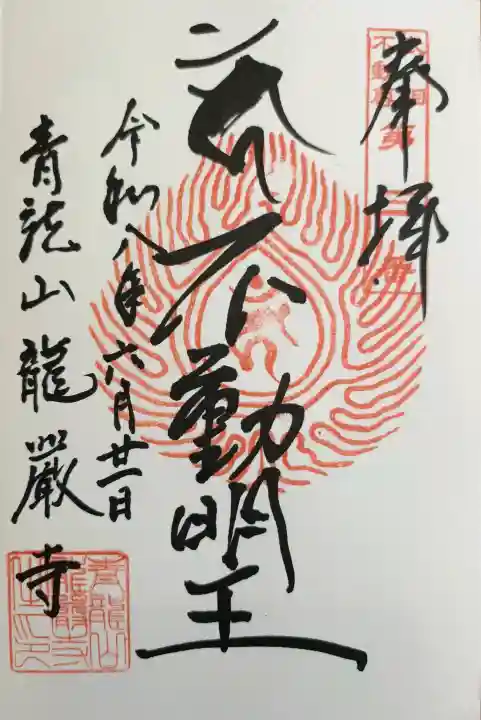 奉拝
不動明王
令和八年六月廿一日
青龍山龍巌寺